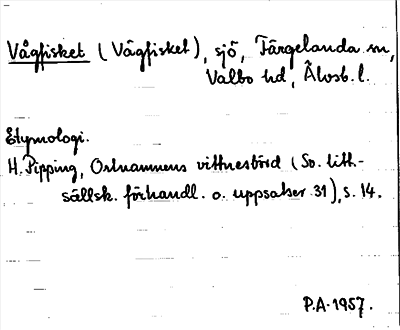 Vågfisket (Vågfisket), sjö, Färgelanda sn,
Valbo hd, Älvsb. l.
Etymologi.
H. Pipping, Ortnamnens vittnesbörd (Sv. litt.-
sällsk. förhandl. o. uppsatser 31), s. 14.
P.A. 1957.